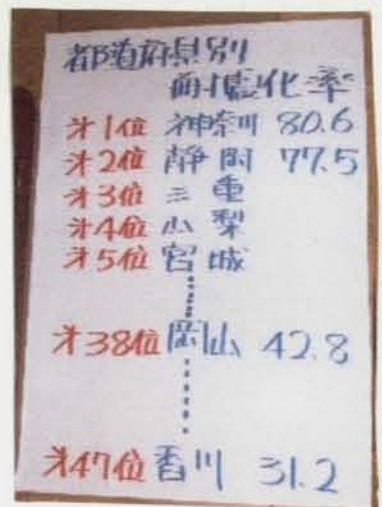 都道府県別
耐震化率
第1位 神奈川 80.6
第2位 静岡 77.5
第3位 三重
第4位 山梨
第5位 宮城
第38位 岡山 42.8
第47位 香川 31.2